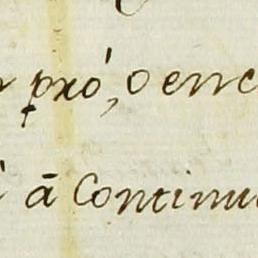 pró, o enc
ā Continu